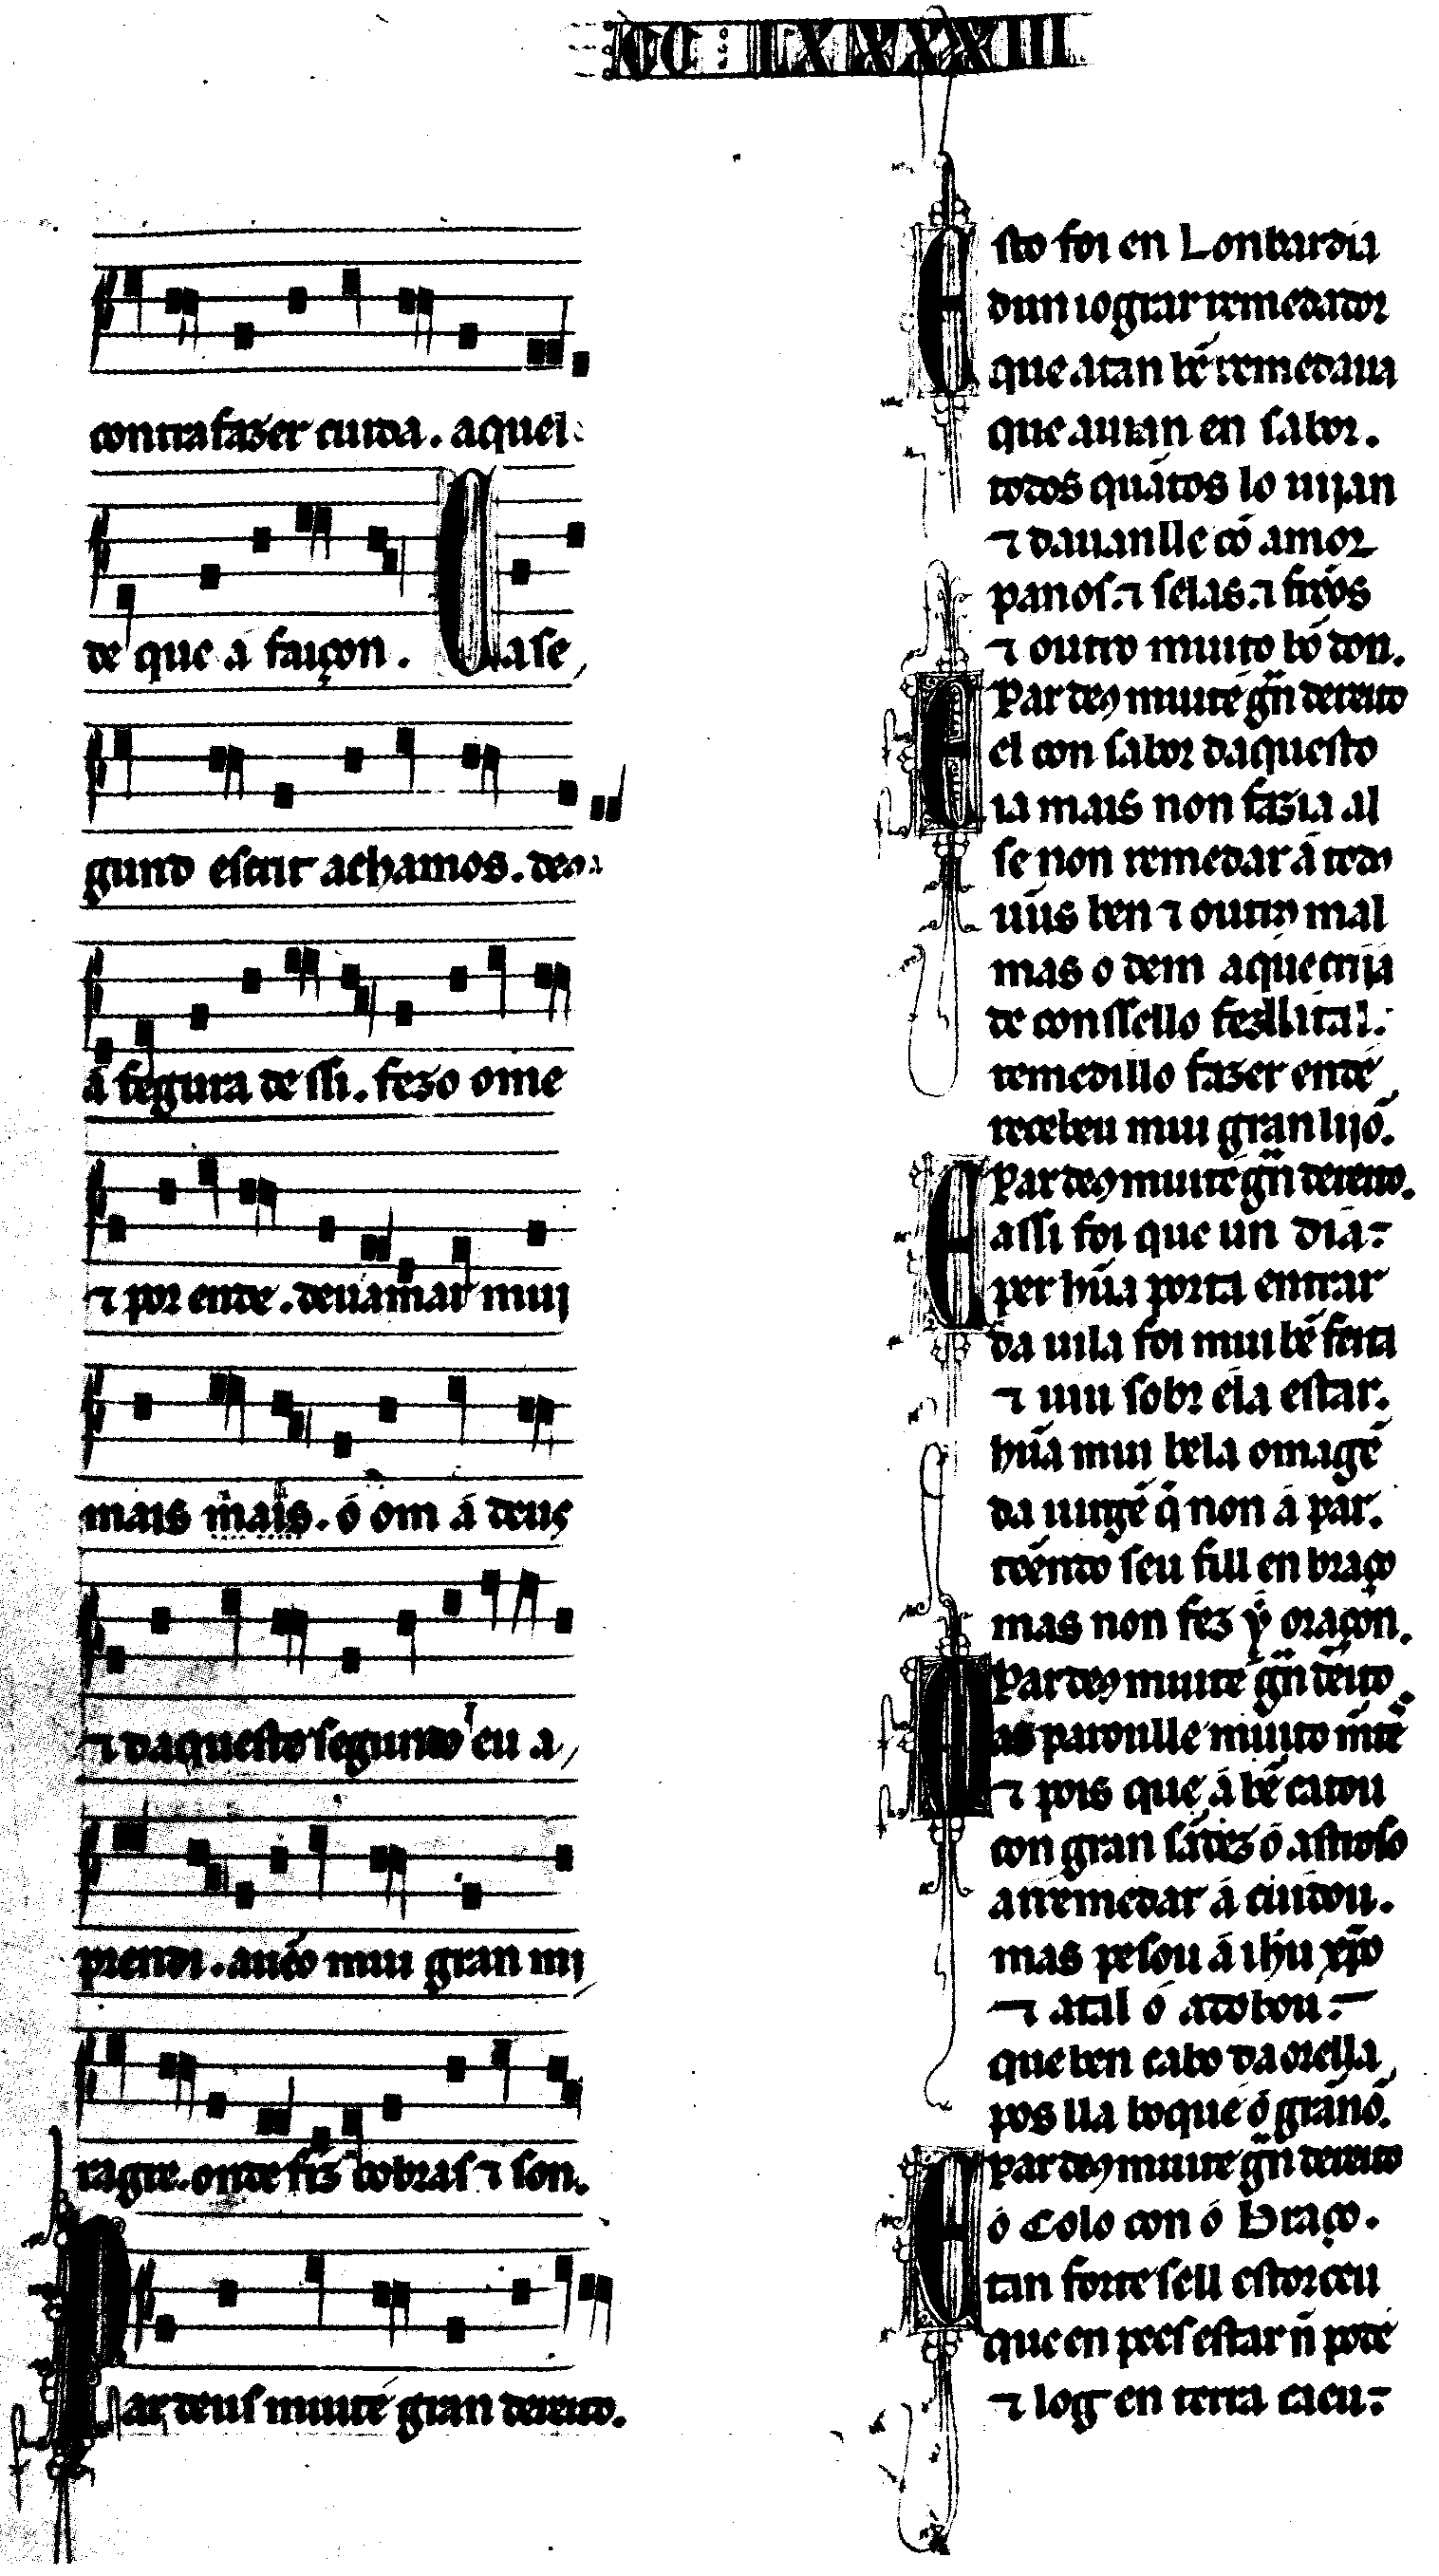 CC LXXXXIII
contrafazer cuida. aquel
de que á faiçon. Ca se
gund escrit achamos. deus
á fegura de ssi. fezo ome
⁊ por ende. deuamar mui
mais mais. ó om á deus
⁊ daquesto segundo eu a
prendi. auẽo mui gran mi
ragre. onde fiz cobras ⁊ son.
Par deus muitẽ gran dereito.
Esto foi en Lonbardia
dun iograr remedador
que atan bẽ remedaua
que auian en sabor.
todos quãtos lo uijan
⁊ dauanlle cõ amor
panos. ⁊ selas. ⁊ frẽos
⁊ outro muito bõ don.
Par deꝰ muitẽ gñ dereito
E el con sabor daquesto
ia mais non fazia al
se non remedar á todꝰ
ũus ben ⁊ outrꝰ mal
mas o dem aquẽ crija
de conssello fezlli tal.
remedillo fazer ende
recebeu mui gran lijõ.
Par deꝰ muitẽ gñ dereito.
E assi foi que un dia
per hũa porta entrar
da uila foi mui bẽ feita
⁊ uiu sobr ela estar.
hũa mui bela omagẽ
da uirgẽ q̃ non á par.
tẽendo seu fill en braço
mas non fez ẏ oraçon.
Par deꝰ muitẽ gñ dereito
Mas paroulle muito mẽte
⁊ pois que á bẽ catou
con gran sãdez ó astroso
arremedar á cuidou.
mas pesou á ihũ xp̃o
⁊ atal ó adobou.
que ben cabo da orella
pos lla boque ó granõ.
Par deꝰ muitẽ gñ dereito
E ó Colo con ó braço.
tan forte sell estorceu
que en pees estar ñ pode
⁊ log en terra caeu